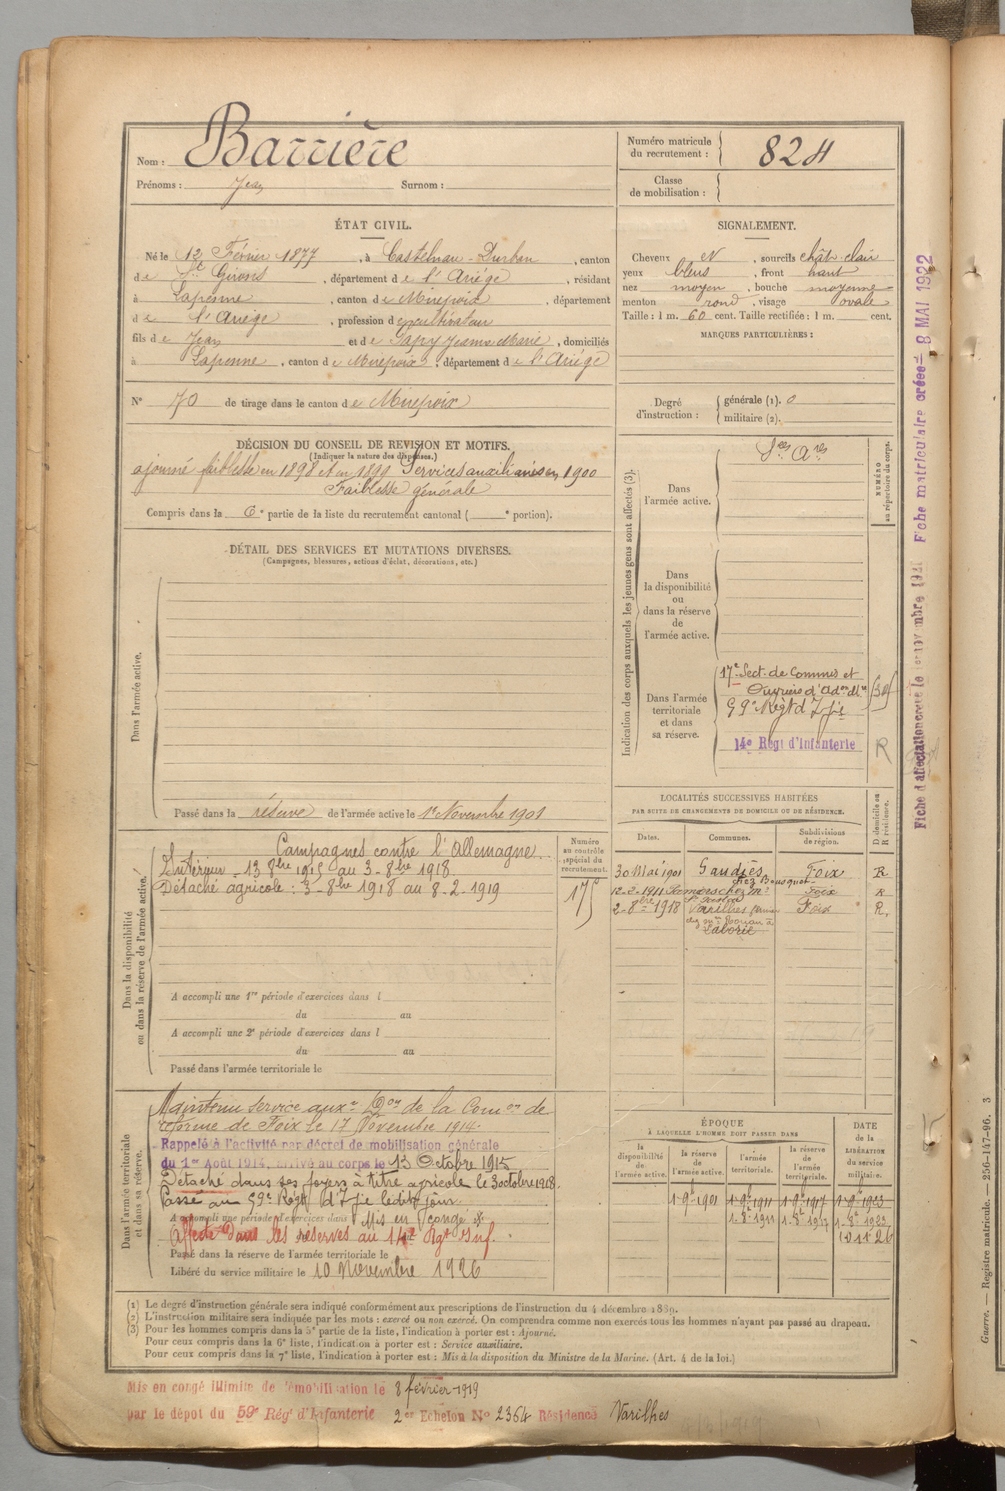 Nom : Barrière
Prénoms : Jean Surnom :
Numéro matricule du recrutement : 824
Classe de mobilisation :
ÉTAT CIVIL.
Né le 12 Février 1877, à Castelnau-Durban, canton
de St Girons, département de l'Ariége, résidant
à Lapenne, canton de Mirepoix, département
de l'Ariège, profession de cultivateur
fils de Jean et de Sapy Jeanne Marie, domiciliés
à Lapenne, canton de Mirepoix, département de l'Ariége
N° 70 de tirage dans le canton de Mirepoix
SIGNALEMENT.
Cheveux N, sourcils chât-clair
yeux bleus, front haut
nez moyen, bouche moyenne
menton rond, visage ovale
Taille : 1 m. 60 cent. Taille rectifiée : 1 m. cent.
MARQUES PARTICULIÈRES :
Degré d'instruction : générale (1). 0
militaire (2).
DÉCISION DU CONSEIL DE REVISION ET MOTIFS.
(Indiquer la nature des dispenses.)
ajourné faiblesse en 1898 et en 1899 Services auxiliaires en 1900
Faiblesse générale
Compris dans la 6e partie de la liste du recrutement cantonal ( e portion).
DÉTAIL DES SERVICES ET MUTATIONS DIVERSES.
(Campagnes, blessures, actions d'éclat, décorations, etc.)
Dans l'armée active.
Passé dans la réserve de l'armée active le 1er Novembre 1901
Indication des corps auxquels les jeunes gens sont affectés (3).
NUMÉRO au répertoire du corps.
Dans l'armée active.
Dans la disponibilité ou dans la réserve de l'armée active.
Dans l'armée territoriale et dans sa réserve.
17e Sect. de Commis et
Ouvriers d'Adon Mre
59e Régt d'Jie
14e Régt d'Infanterie
R
LOCALITÉS SUCCESSIVES HABITÉES
PAR SUITE DE CHANGEMENTS DE DOMICILE OU DE RÉSIDENCE.
Dates. Communes. Subdivisions de région. D domicile ou R résidence.
30 Mai 1901 Gaudiès Foix R
12-2-1911 Foix R
2-8bre 1918 Varilhes Foix R.
Laborie
Dans la disponibilité ou dans la réserve de l'armée active.
Numéro au contrôle spécial du recrutement.
175
Campagnes contre l'Allemagne.
Intérieur - 13 8bre 1915 au 3-8bre 1918
Détaché agricole : 3-8bre 1918 au 8-2-1919
A accompli une 1re période d'exercices dans l
du au
A accompli une 2e période d'exercices dans l
du au
Passé dans l'armée territoriale le
Dans l'armée territoriale et dans sa réserve.
Maintenu service auxre Don de la Comon de
réforme de Foix le 17 Novembre 1914.
Rappelé à l'activité par décret de mobilisation générale
du 1er Août 1914, arrivé au corps le 13 Octobre 1915
Détaché dans ses foyers à titre agricole le 3 octobre 1918.
Passé au 59e Régt d'Jie ledit jour
A accompli une période d'exercices dans Mis en congé
Affecté dans les réserves au 14e Rgt Inf.
Passé dans la réserve de l'armée territoriale le
Libéré du service militaire le 10 Novembre 1926
ÉPOQUE
À LAQUELLE L'HOMME DOIT PASSER DANS
la disponibilité de l'armée active. la réserve de l'armée active. l'armée territoriale. la réserve de l'armée territoriale. DATE de la LIBÉRATION du service militaire.
1-9e-1901 1-9e-1911 1-9e-1917 1-9e-1923
1-8e-1911 1-8e-1917 1-8e-1922
10 11 26
(1) Le degré d'instruction générale sera indiqué conformément aux prescriptions de l'instruction du 4 décembre 1889.
(2) L'instruction militaire sera indiquée par les mots : exercé ou non exercé. On comprendra comme non exercés tous les hommes n'ayant pas passé au drapeau.
(3) Pour les hommes compris dans la 5e partie de la liste, l'indication à porter est : Ajourné.
Pour ceux compris dans la 6e liste, l'indication à porter est : Service auxiliaire.
Pour ceux compris dans la 7e liste, l'indication à porter est : Mis à la disposition du Ministre de la Marine. (Art. 4 de la loi.)
Mis en congé illimité de démobilisation le 8 février 1919
par le dépôt du 59e Rég' d'Infanterie 2e Echelon No 2364 Résidence Varilhes
Fiche matriculaire créée le 8 MAI 1922
Guerre. — Registre matricule. — 256-147-96. 3